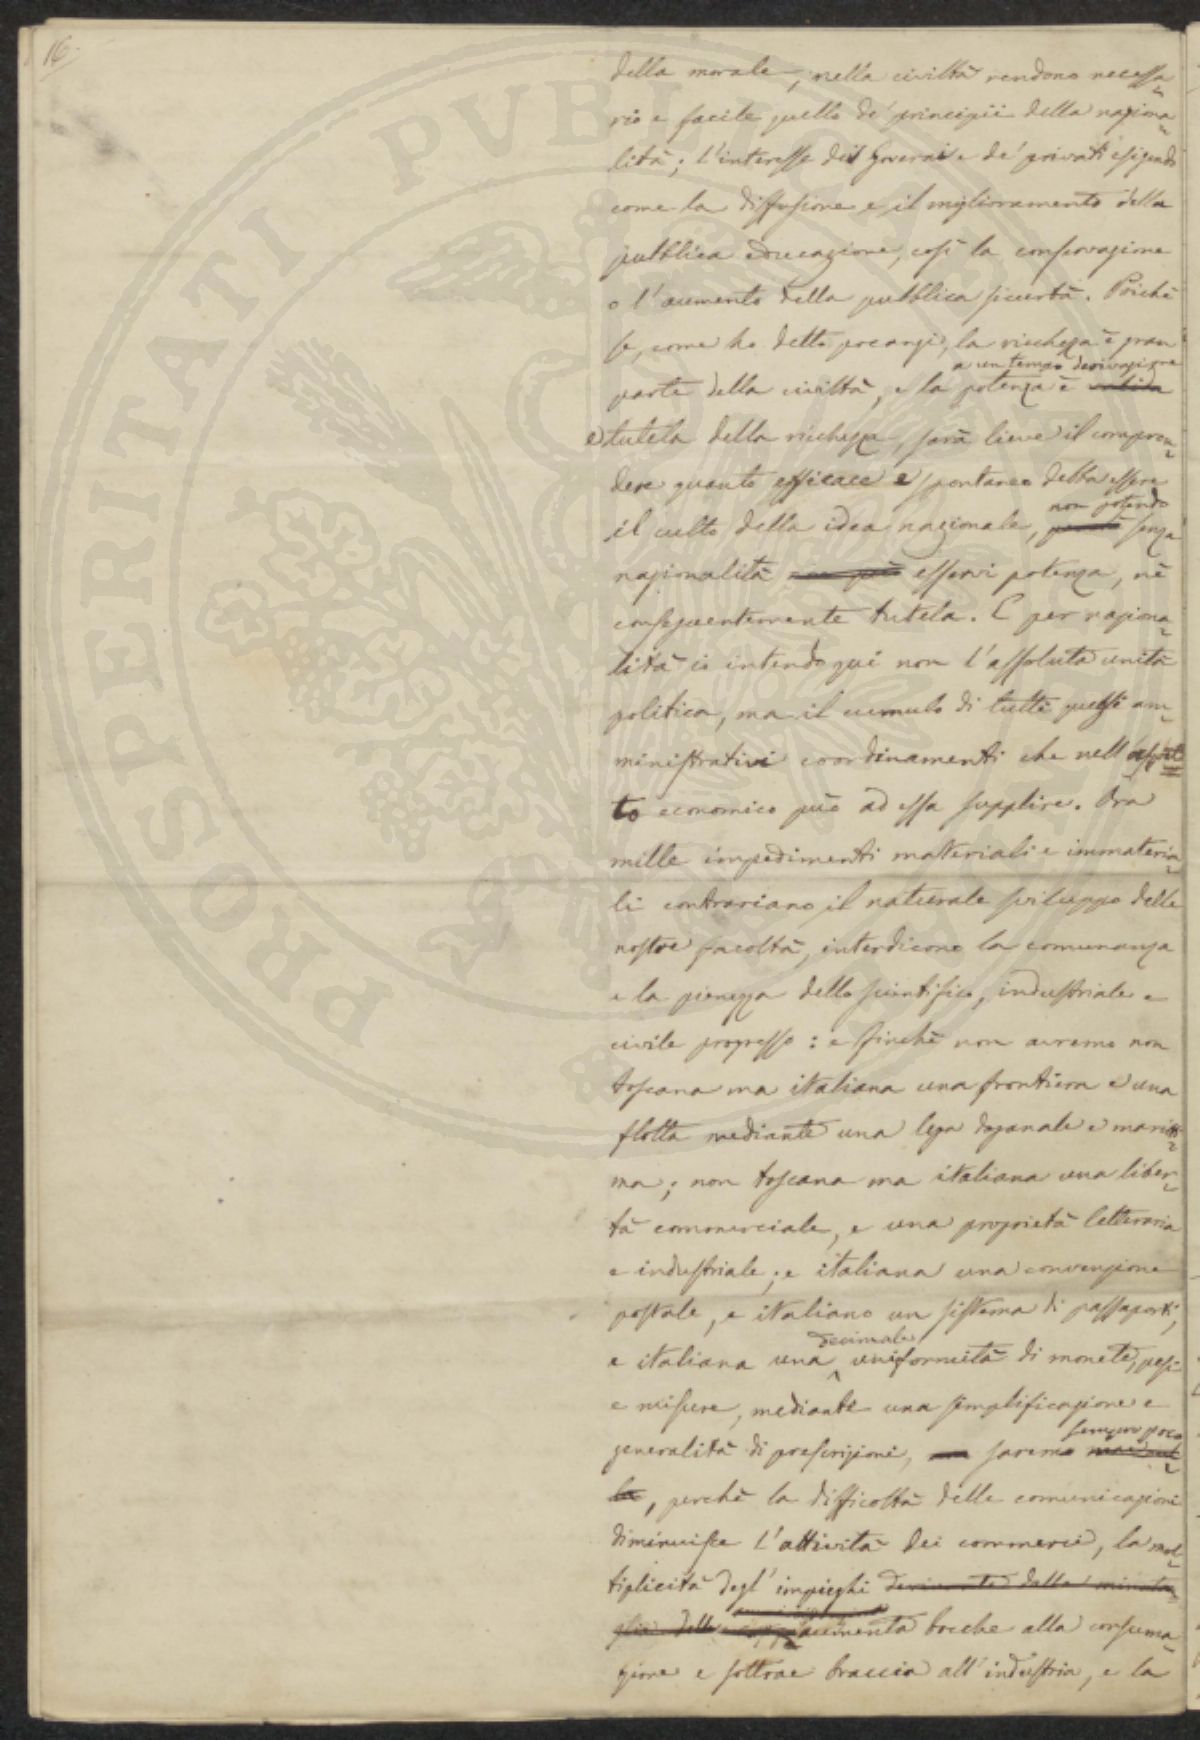 16.
della morale, nella civiltà rendono necessa
rio e facile quello de' principii della naziona
lità; l'interesse dei Governi e de' privati esigendo
come la diffusione e il miglioramento della
pubblica educazione, così la conservazione
o l'aumento della pubblica sicurtà. Poichè
se, come ho detto poc'anzi, la ricchezza è gran
a un tempo derivazione
parte della civiltà, e la potenza è valida
e tutela della ricchezza, sarà lieve il compren
dere quanto efficace e spontaneo debba essere
non potendo
il culto della idea nazionale, perchè senza
nazionalità non può esservi potenza, nè
conseguentemente tutela. E per naziona
lità io intendo qui non l'assoluta unità
politica, ma il cumulo di tutti quegli am
ministrativi coordinamenti che nell'aspet
to economico può ad essa supplire. Ora
mille impedimenti materiali e immateria
li contrariano il naturale sviluppo delle
nostre facoltà, interdicono la comunanza
e la pienezza dello scientifico, industriale e
civile progresso: e finchè non avremo non
toscana ma italiana una frontiera e una
flotta mediante una lega doganale e maritti
ma; non toscana ma italiana una liber
tà commerciale, e una proprietà letteraria
e industriale; e italiana una convenzione
postale, e italiano un sistema di passaporti,
decimale
e italiana una uniformità di monete, pesi
e misure, mediante una semplificazione e
sempre poco
generalità di prescrizioni, saremo
perchè la difficoltà delle comunicazioni
diminuisce l'attività dei commerci, la mol
tiplicità degl'impieghi derivante dalla
delle aumenta bocche alla consuma
zione e sottrae braccia all'industria, e la
PROSPERITATI PUBLICAE